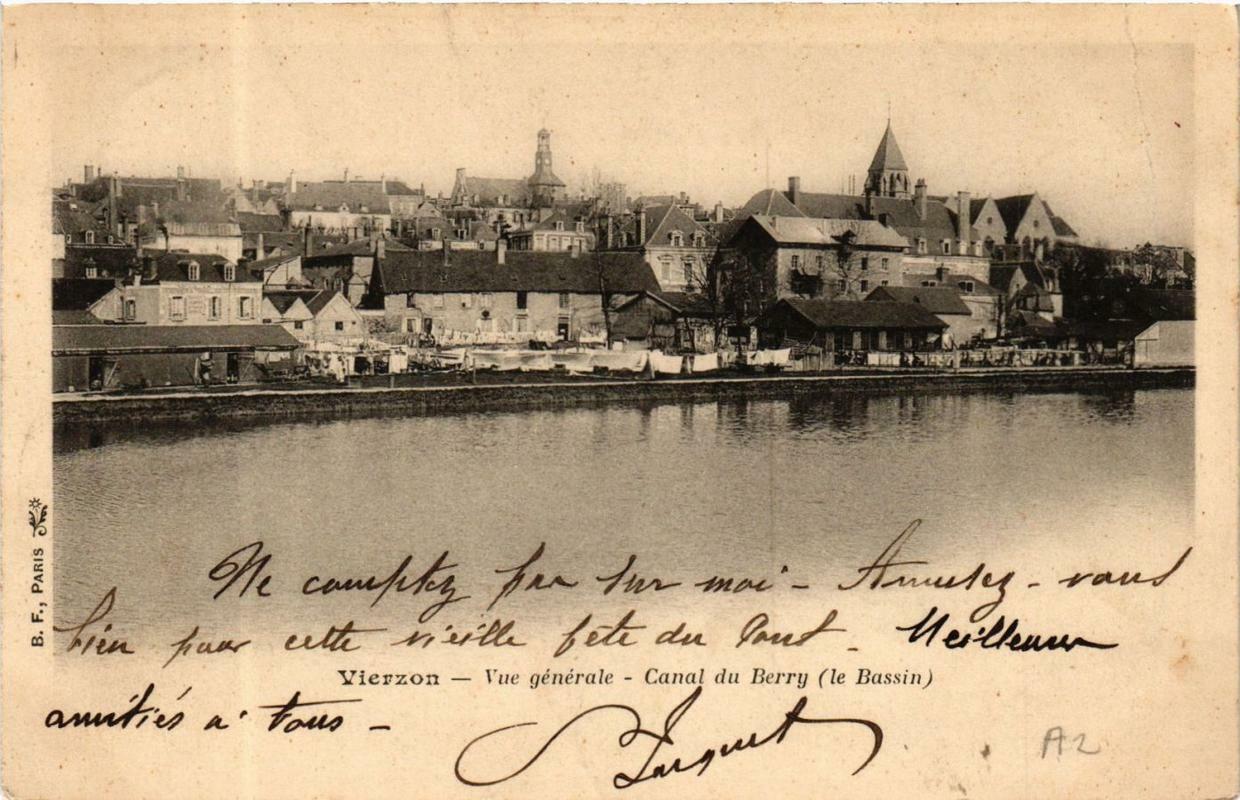 Ne comptez pas sur moi - Amusez-vous
bien pour cette vieille fête du Pont - Meilleures
Vierzon — Vue générale - Canal du Berry (le Bassin)
amitiés à tous -
A2
B. F., PARIS